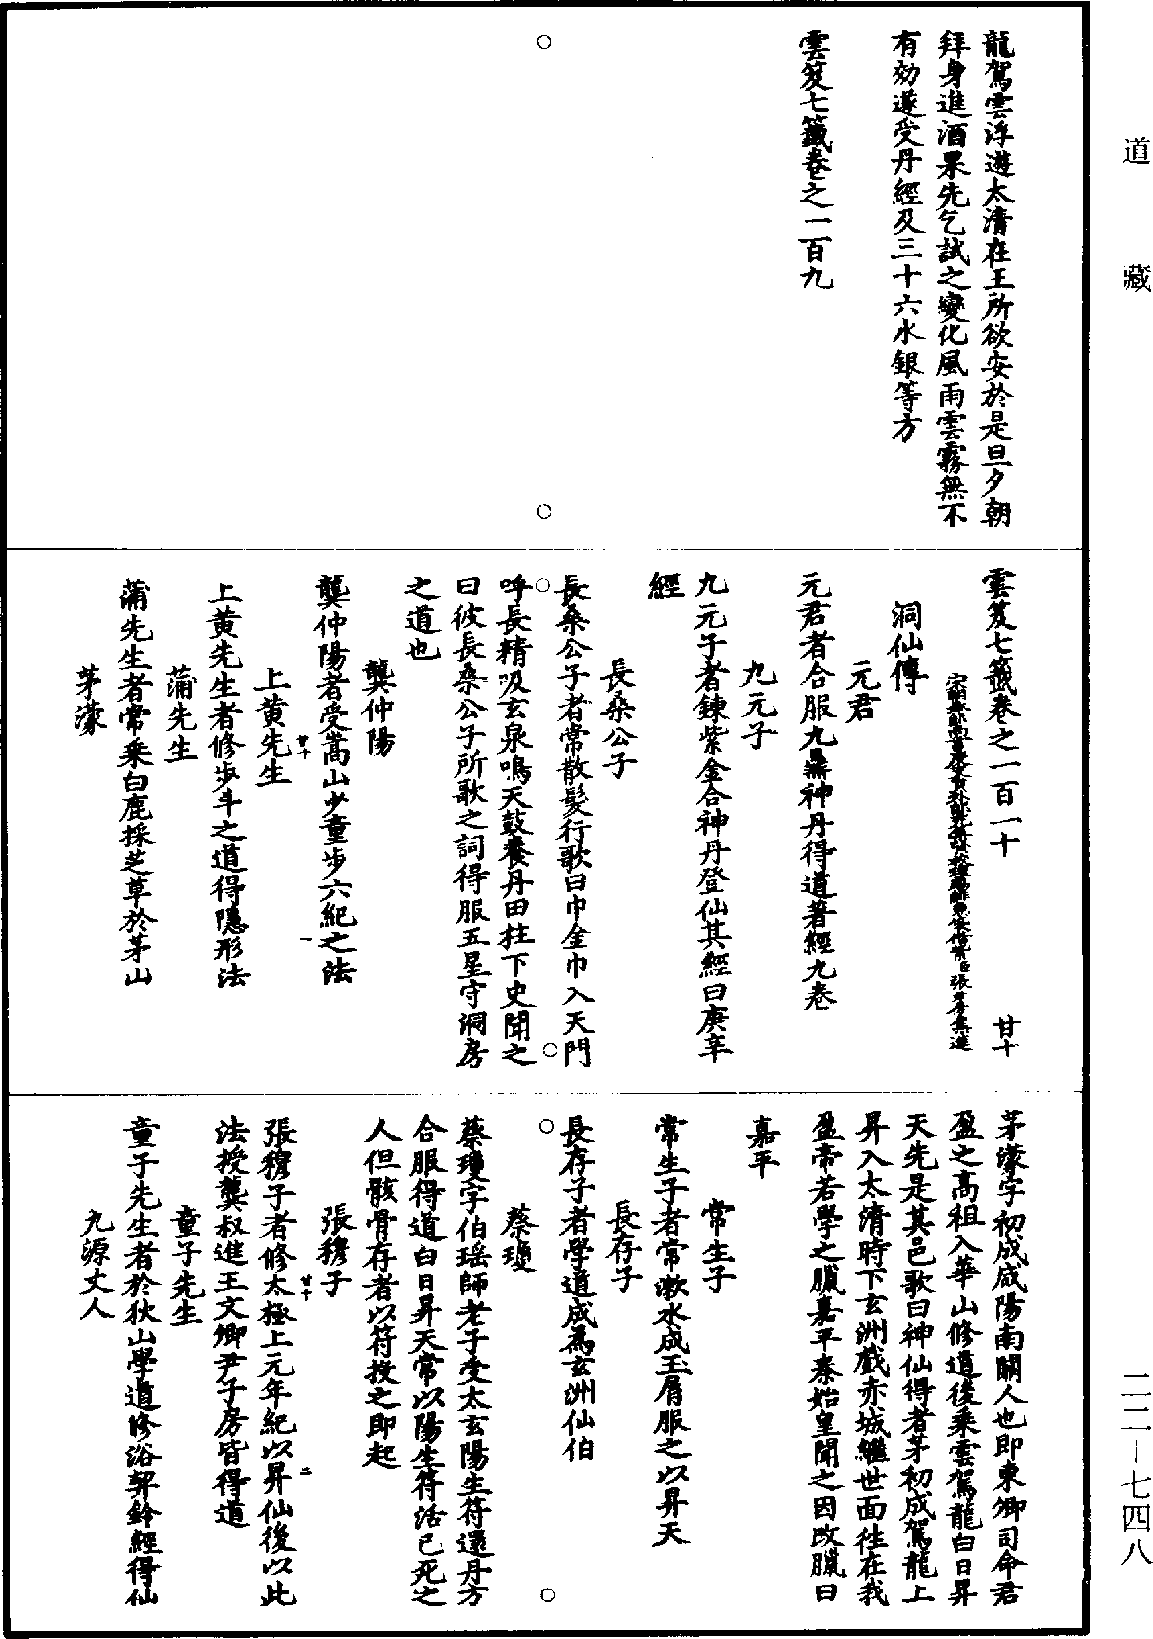 道藏
龍駕雲浮遊太清在王所欲安於是旦夕朝
拜身進酒果先乞試之變化風雨雲霧無不
有効遂受丹經及三十六水銀等方
雲笈七籤卷之一百九
雲笈七籤卷之一百一十 甘十
洞仙傳
元君
元君者合服九鼎神丹得道著經九卷
九元子
九元子者鍊紫金合神丹登仙其經曰庚辛
經
長桑公子
長桑公子者常散髮行歌曰巾金巾入天門
呼長精吸玄泉鳴天鼓養丹田柱下史聞之
曰彼長桑公子所歌之詞得服五星守洞房
之道也
龔仲陽
龔仲陽者受嵩山少童步六紀之法
上黃先生
甘十 一
上黃先生者修步斗之道得隱形法
蒲先生
蒲先生者常乘白鹿採芝草於茅山
茅濛
茅濛字初成咸陽南關人也即東卿司命君
盈之高祖入華山修道後乘雲駕龍白日昇
天先是其邑歌曰神仙得者茅初成駕龍上
昇入太清時下玄洲戲赤城繼世而往在我
盈帝若學之臘嘉平秦始皇聞之因改臘曰
嘉平
常生子
常生子者常漱水成玉屑服之以昇天
長存子
長存子者學道成爲玄洲仙伯
蔡瓊
蔡瓊字伯瑶師老子受太玄陽生符還丹方
合服得道白日昇天常以陽生符活已死之
人但骸骨存者以符投之即起
張穆子
甘十 二
張穆子者修太極上元年紀以昇仙後以此
法授龔叔進王文卿尹子房皆得道
童子先生
童子先生者於狄山學道修浴契鈐經得仙
九源丈人
二二—七四八